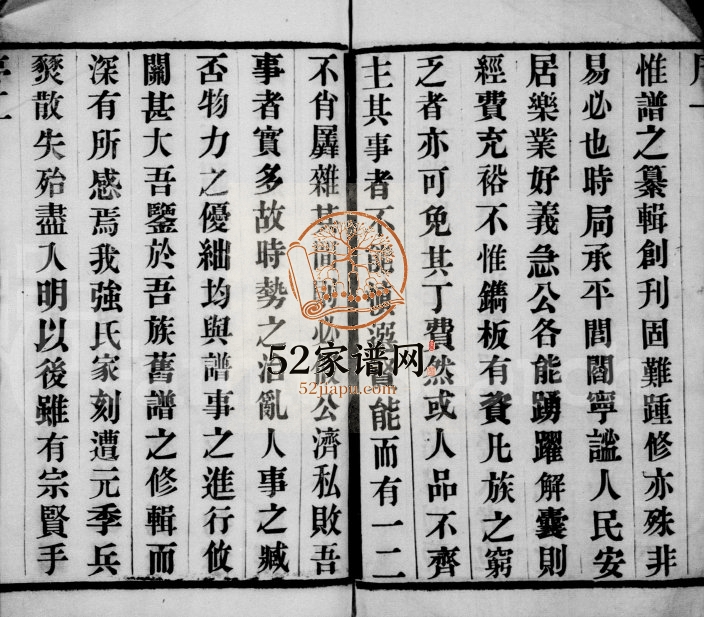 惟譜之纂輯創刊固難踵修亦殊非
易必也時局承平閭閻寧謐人民安
居樂業好義急公各能踴躍解囊則
經費充裕不惟鐫板有資凡族之窮
乏者亦可免其丁費然或人品不齊
主其事者不能能而有一二
不肖羼雜其間則必公濟私敗吾
事者實多故時勢之治亂人事之臧
否物力之優絀均與譜事之進行攸
關甚大吾鑒於吾族舊譜之修輯而
深有所感焉我強氏家刻遭元季兵
燹散失殆盡入明以後雖有宗賢手
52家谱网
52jiapu.com